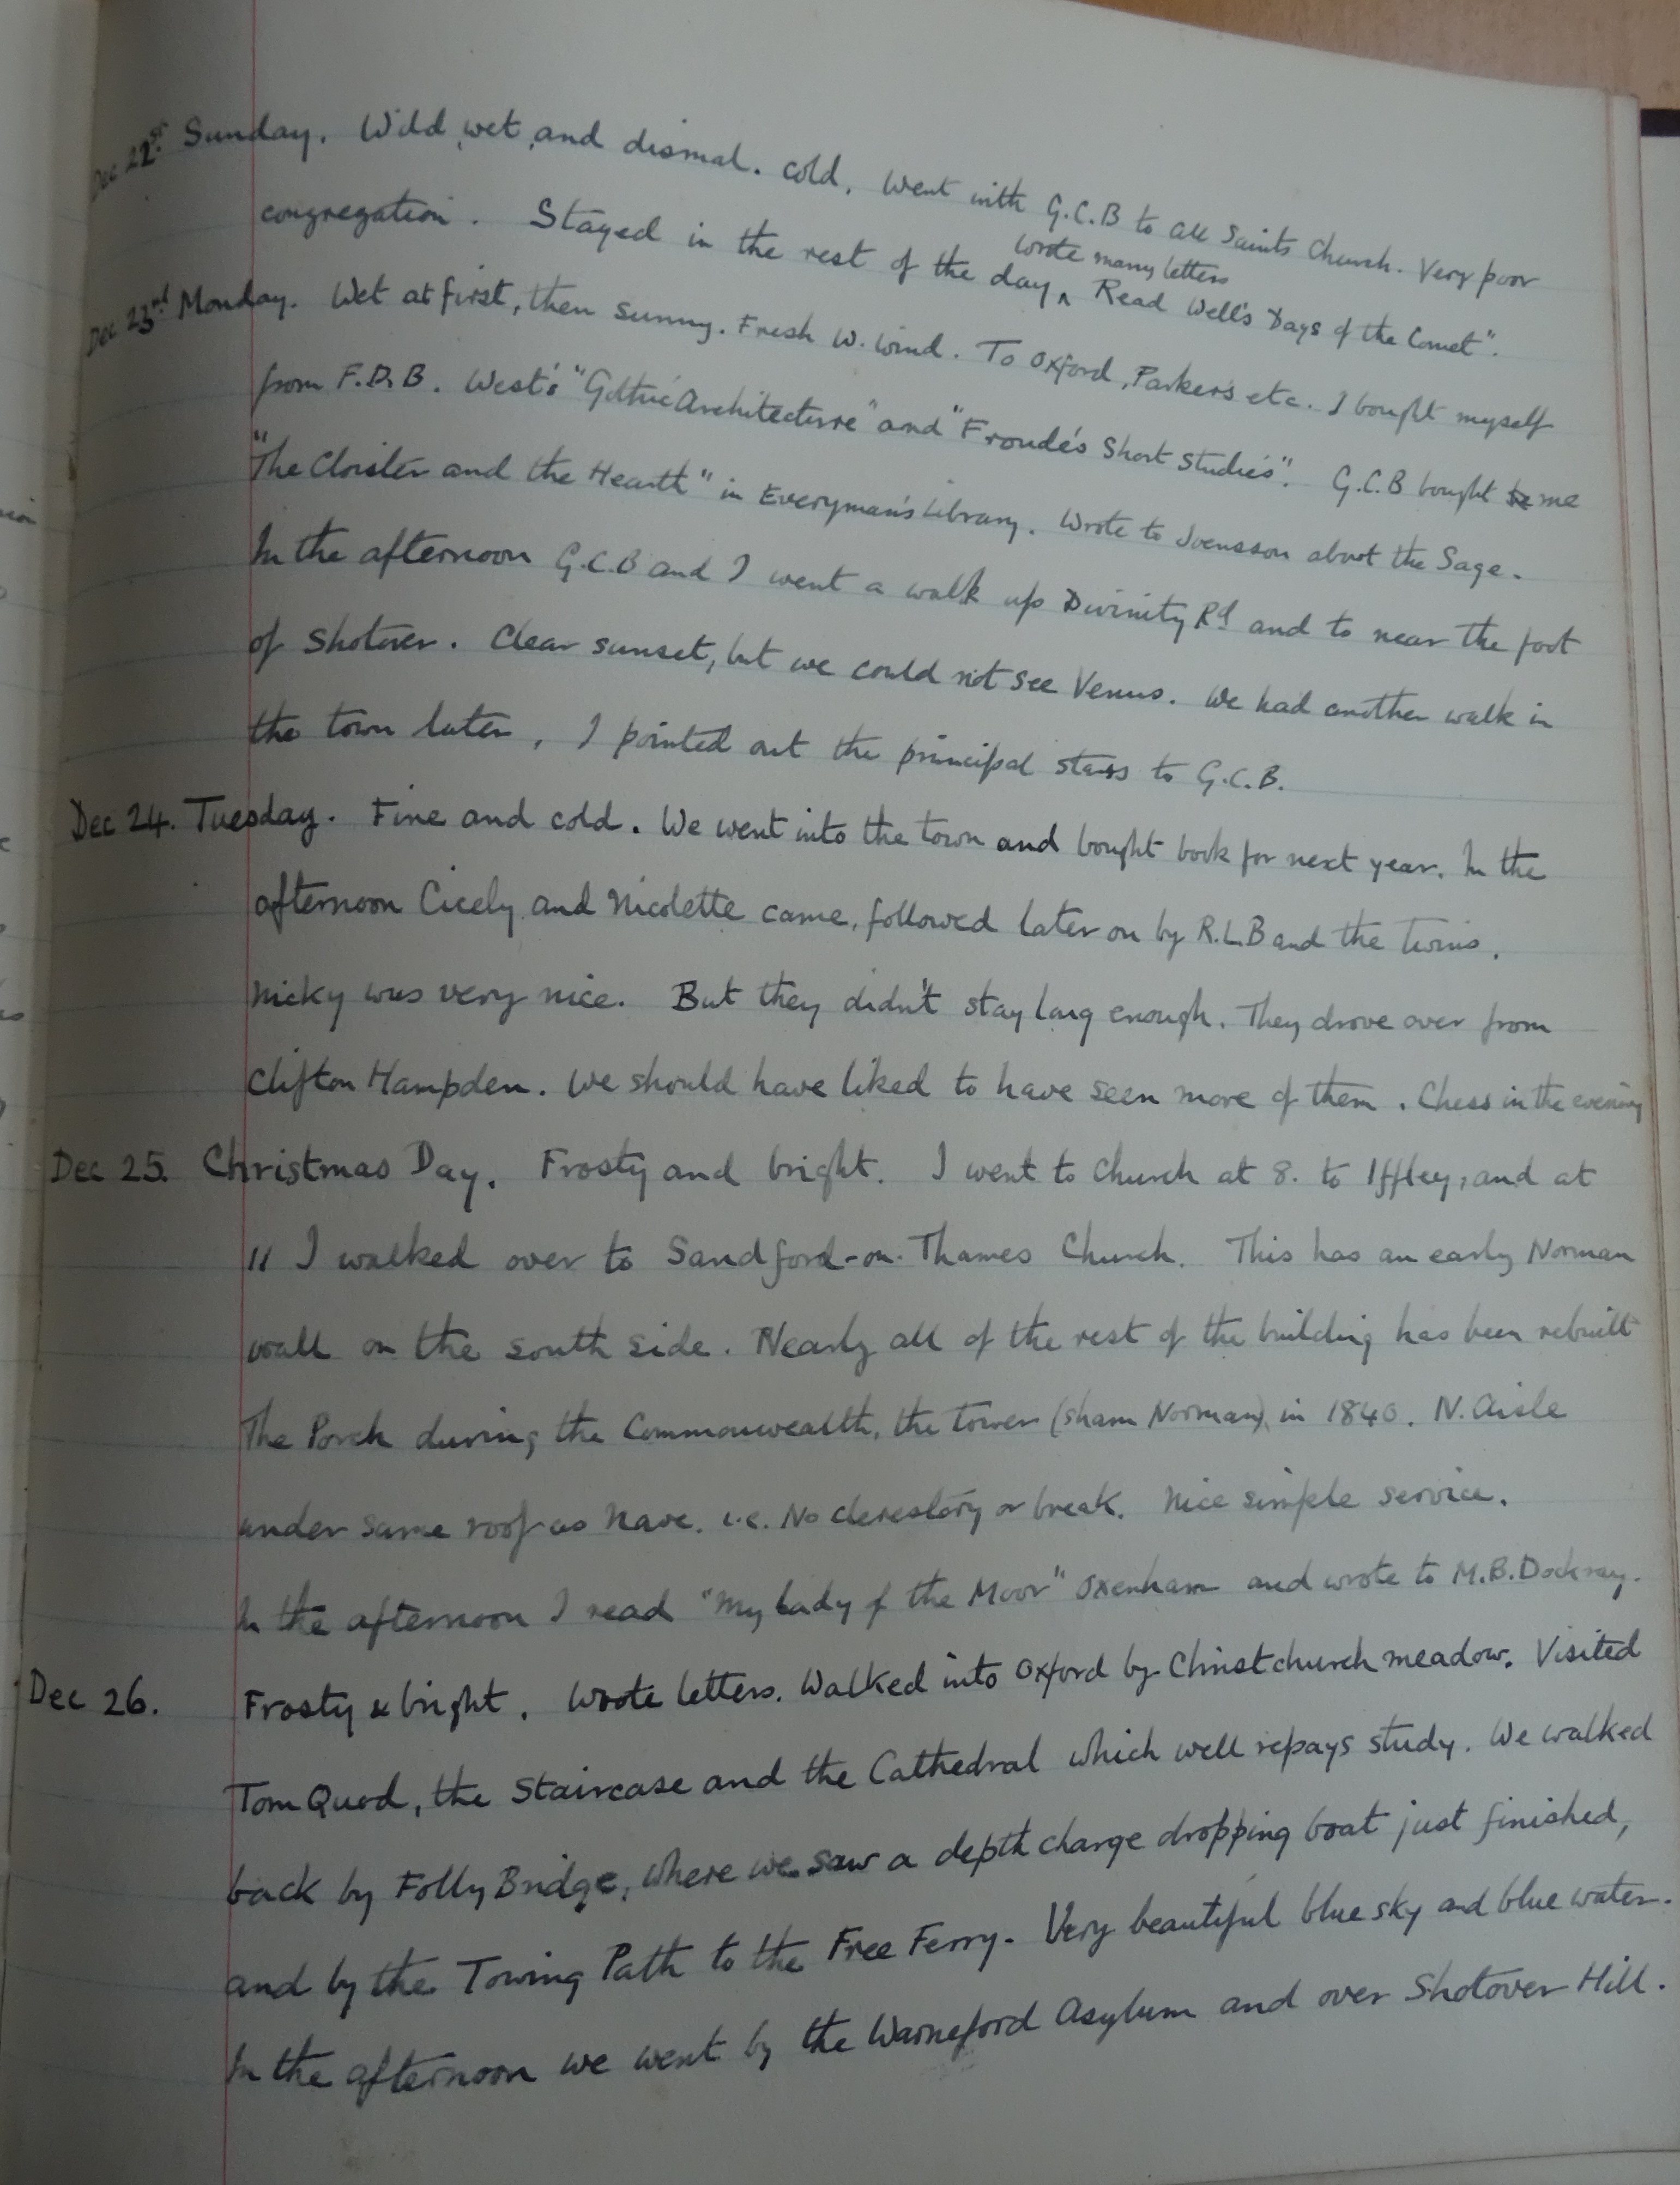 Dec 22nd Sunday. Wild, wet, and dismal. Cold. Went with G.C.B to All Saints Church. Very poor
congregation. Stayed in the rest of the day, wrote many letters Read Well's Days of the Comet".
Dec 23rd Monday. Wet at first, then sunny. Fresh W. wind. To Oxford, Parker's etc. I bought myself
from F.D.B. West's "Gothic Architecture" and "Froude's Short Studies". G.C.B bought me
"The Cloister and the Hearth" in Everyman's Library. Wrote to Joensson about the Sage.
In the afternoon G.C.B and I went a walk up Divinity Rd and to near the foot
of Shotover. Clear sunset, but we could not see Venus. We had another walk in
the town later, I pointed out the principal stars to G.C.B.
Dec 24. Tuesday. Fine and cold. We went into the town and bought book for next year. In the
afternoon Cicely and Nicolette came, followed later on by R.L.B and the twins.
Nicky was very nice. But they didn't stay long enough. They drove over from
Clifton Hampden. We should have liked to have seen more of them. Chess in the evening
Dec 25. Christmas Day. Frosty and bright. I went to church at 8. to Iffley, and at
11 I walked over to Sandford-on-Thames Church. This has an early Norman
wall on the south side. Nearly all of the rest of the building has been rebuilt
The Porch during the Commonwealth, the tower (sham Norman) in 1840. N. Aisle
under same roof as Nave. i.e. No clerestory or break. Nice simple service.
In the afternoon I read "My Lady of the Moor" Oxenham and wrote to M.B. Dockray.
Dec 26. Frosty & bright. Wrote letters. Walked into Oxford by Christchurch meadow. Visited
Tom Quad, the Staircase and the Cathedral which well repays study. We walked
back by Folly Bridge, where we saw a depth charge dropping boat just finished,
and by the Towing Path to the Free Ferry. Very beautiful blue sky and blue water.
In the afternoon we went by the Warneford Asylum and over Shotover Hill.